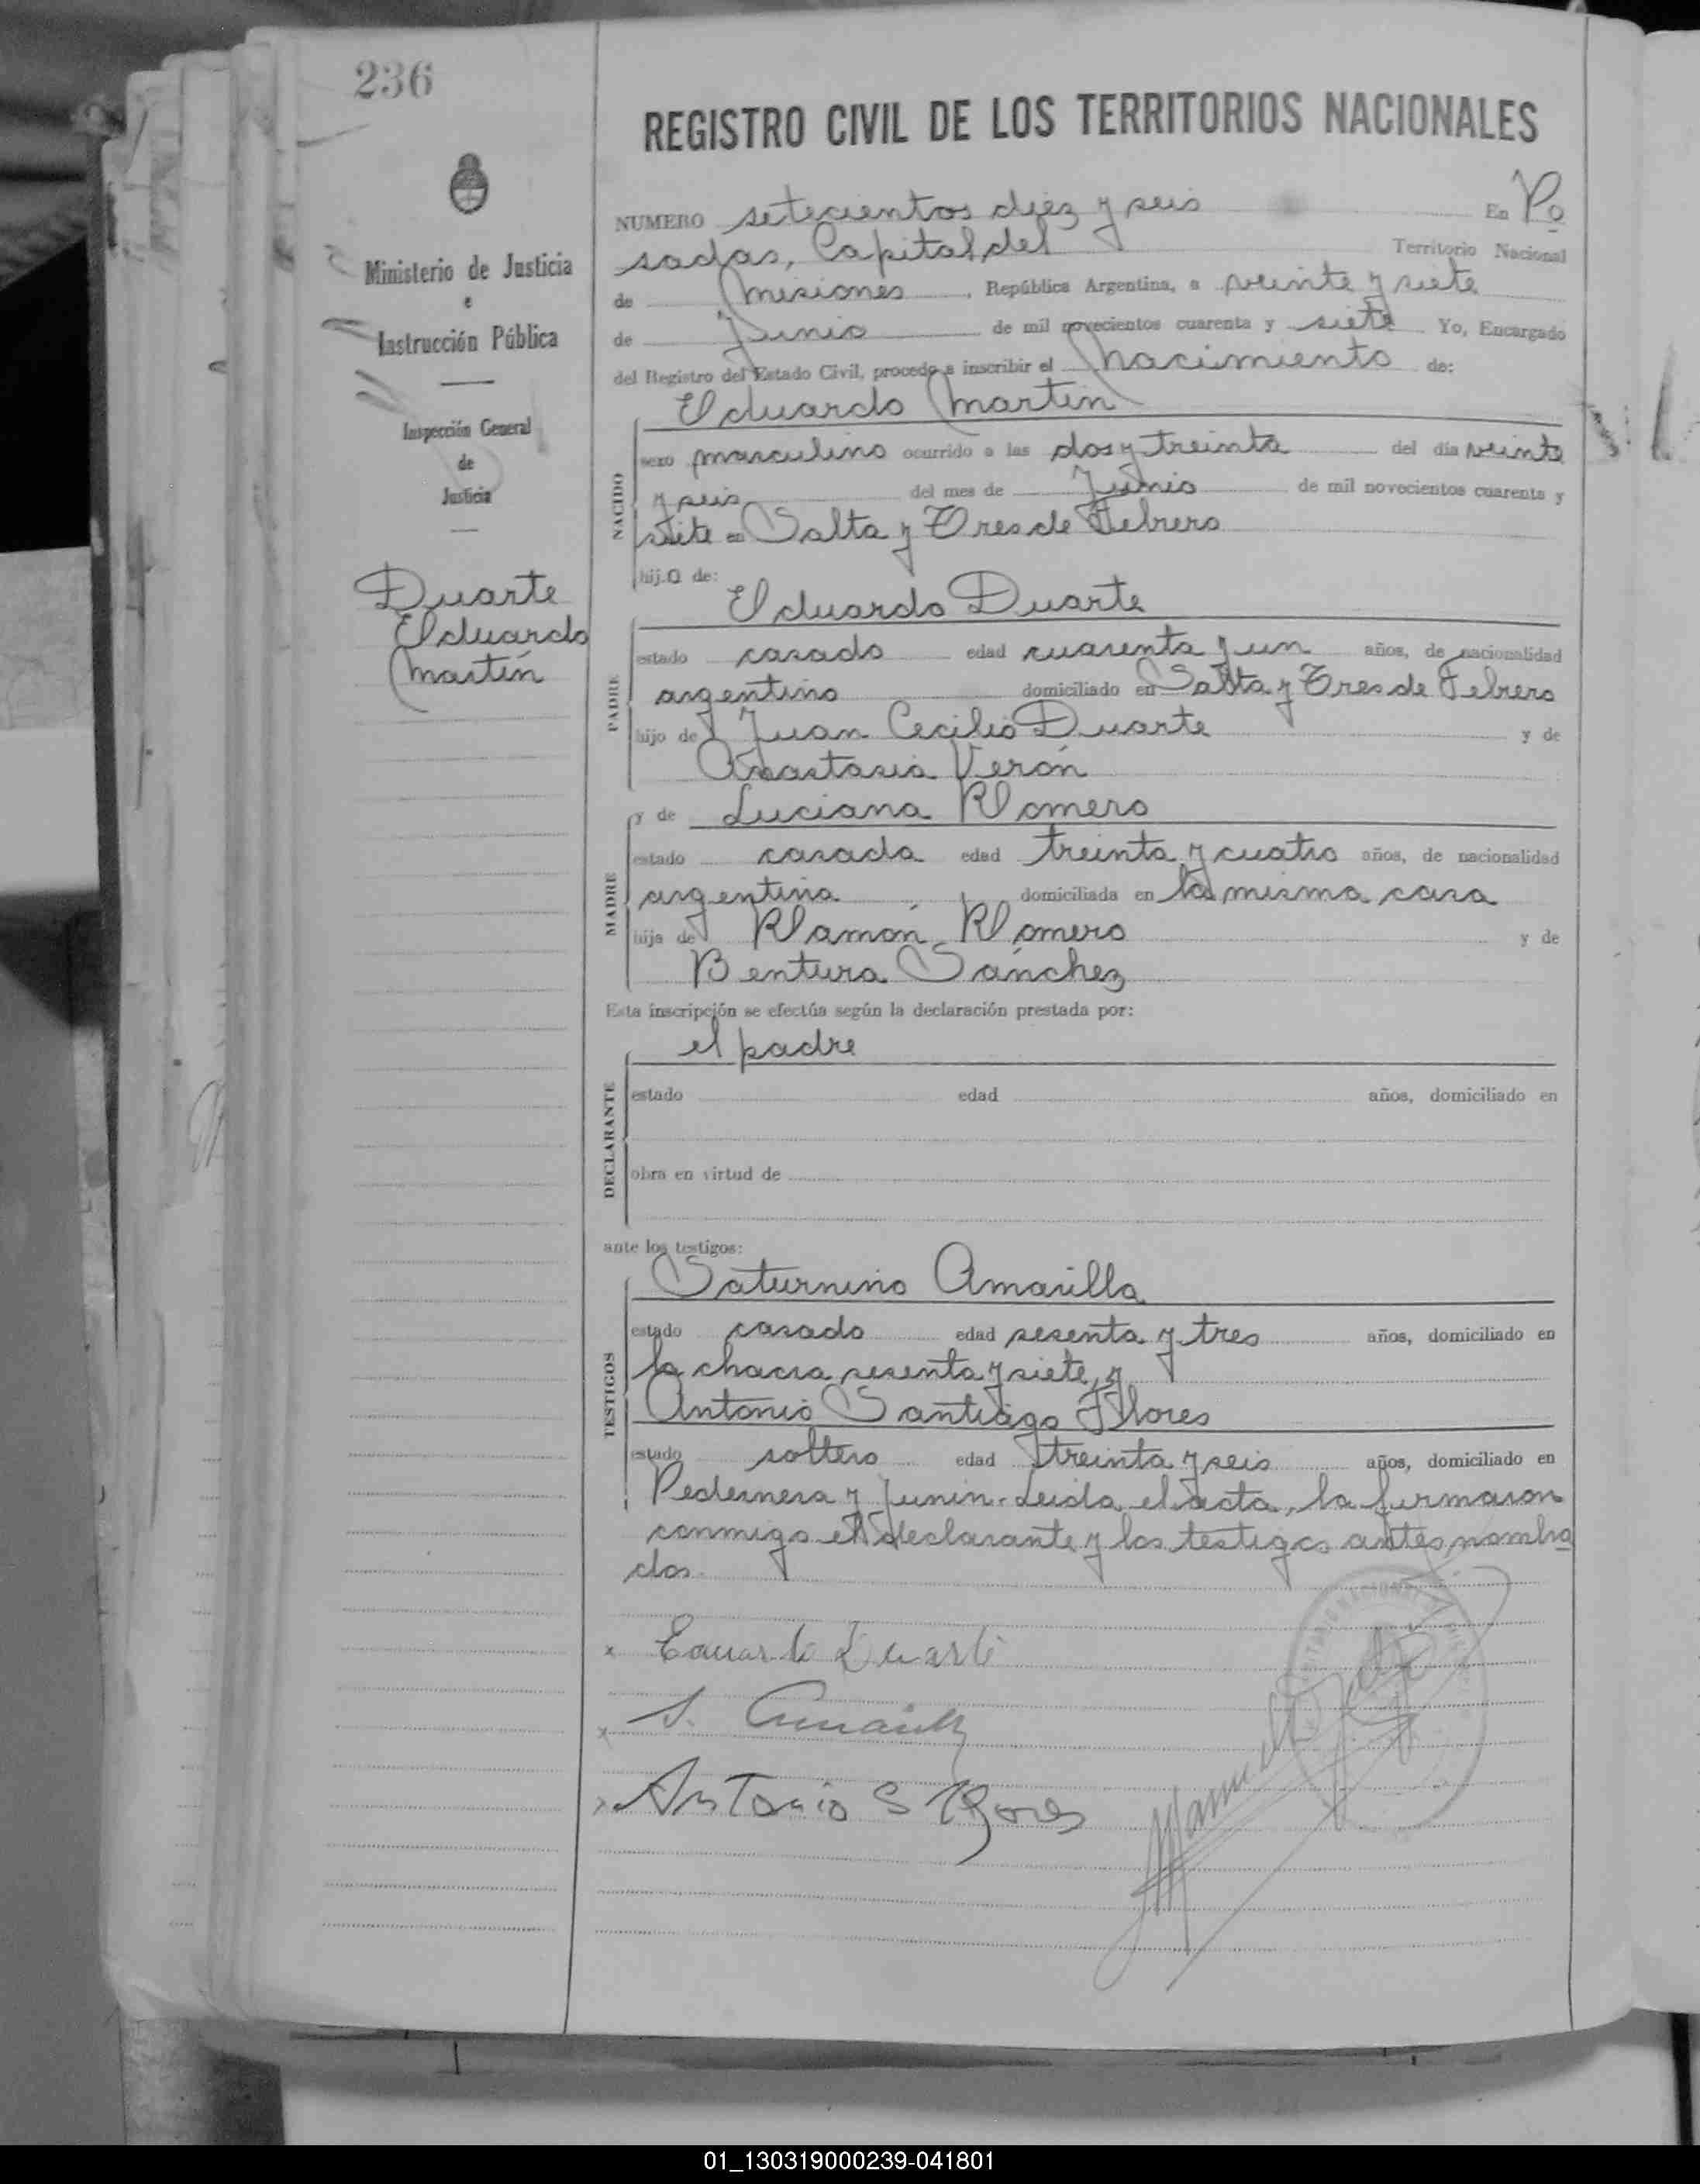 236
REGISTRO CIVIL DE LOS TERRITORIOS NACIONALES
Ministerio de Justicia
e
Instrucción Pública
Inspección General
de
Justicia
Duarte
Eduardo
Martín
NUMERO setecientos diez y seis En Po
sadas, Capital del Territorio Nacional
de Misiones, República Argentina, a veinte y siete
de Junio de mil novecientos cuarenta y siete Yo, Encargado
del Registro del Estado Civil, procedo a inscribir el Nacimiento de:
Eduardo Martin
NACIDO
sexo masculino ocurrido a las dos y treinta del día veinte
y seis del mes de Junio de mil novecientos cuarenta y
siete en Salta y Tres de Febrero
hij.o de:
Eduardo Duarte
PADRE
estado casado edad cuarenta y un años, de nacionalidad
argentino domiciliado en Salta y Tres de Febrero
hijo de Juan Cecilio Duarte y de
Anastasia Verón
y de Luciana Romero
MADRE
estado casada edad treinta y cuatro años, de nacionalidad
argentina domiciliada en la misma casa
hija de Ramón Romero y de
Bentura Sánchez
Esta inscripción se efectúa según la declaración prestada por:
el padre
DECLARANTE
estado edad años, domiciliado en
obra en virtud de
ante los testigos:
Saturnino Amarilla
TESTIGOS
estado casado edad sesenta y tres años, domiciliado en
la chacra sesenta y siete, y
Antonio Santiago Flores
estado soltero edad treinta y seis años, domiciliado en
Pedernera y Junin. Leida el acta, la firmaron
conmigo el declarante y los testigos antes nombra
dos.
x Eduardo Duarte
x S. Amarilla
x Antonio S Flores
Manuel
01_130319000239-041801